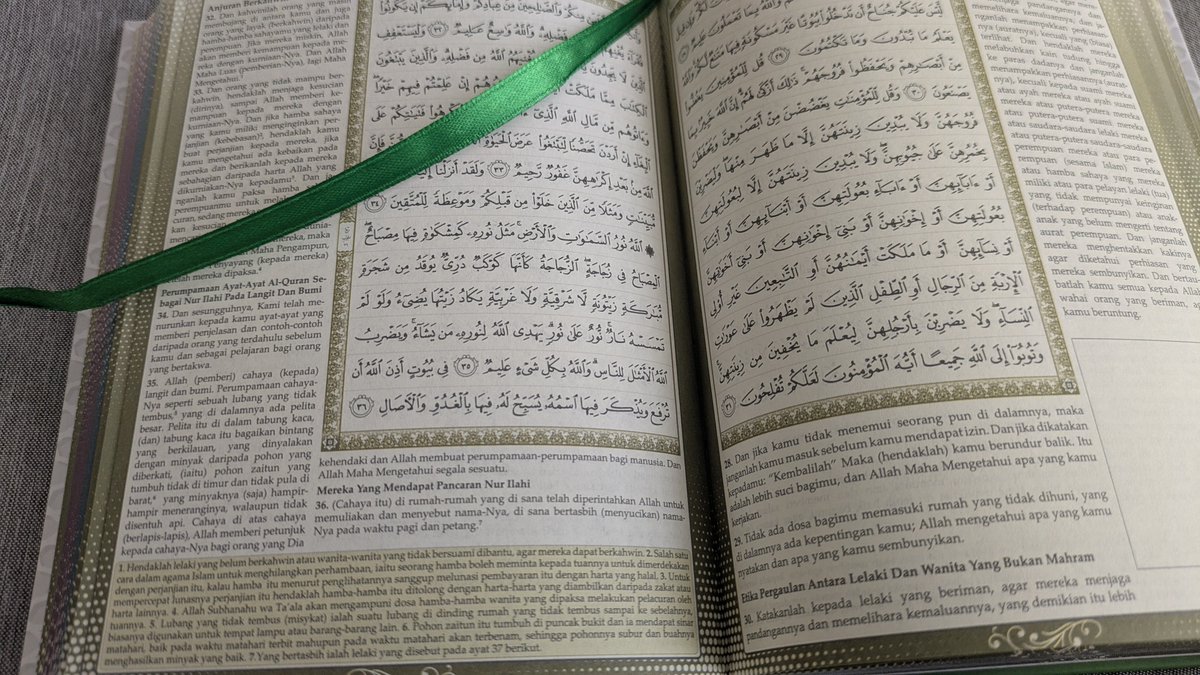 لَيْسَ عَلَيْكُمْ جُنَاحٌ أَن تَدْخُلُوا۟ بُيُوتًا غَيْرَ مَسْكُونَةٍ فِيهَا مَتَٰعٌ لَّكُمْ وَٱللَّهُ
يَعْلَمُ مَا تُبْدُونَ وَمَا تَكْتُمُونَ ٢٩ قُل لِّلْمُؤْمِنِينَ يَغُضُّوا۟
مِنْ أَبْصَٰرِهِمْ وَيَحْفَظُوا۟ فُرُوجَهُمْ ذَٰلِكَ أَزْكَىٰ لَهُمْ إِنَّ ٱللَّهَ خَبِيرٌۢ بِمَا
يَصْنَعُونَ ٣٠ وَقُل لِّلْمُؤْمِنَٰتِ يَغْضُضْنَ مِنْ أَبْصَٰرِهِنَّ وَيَحْفَظْنَ
فُرُوجَهُنَّ وَلَا يُبْدِينَ زِينَتَهُنَّ إِلَّا مَا ظَهَرَ مِنْهَا وَلْيَضْرِبْنَ
بِخُمُرِهِنَّ عَلَىٰ جُيُوبِهِنَّ وَلَا يُبْدِينَ زِينَتَهُنَّ إِلَّا لِبُعُولَتِهِنَّ
أَوْ ءَابَآئِهِنَّ أَوْ ءَابَآءِ بُعُولَتِهِنَّ أَوْ أَبْنَآئِهِنَّ أَوْ أَبْنَآءِ
بُعُولَتِهِنَّ أَوْ إِخْوَٰنِهِنَّ أَوْ بَنِىٓ إِخْوَٰنِهِنَّ أَوْ بَنِىٓ أَخَوَٰتِهِنَّ
أَوْ نِسَآئِهِنَّ أَوْ مَا مَلَكَتْ أَيْمَٰنُهُنَّ أَوِ ٱلتَّٰبِعِينَ غَيْرِ أُو۟لِى
ٱلْإِرْبَةِ مِنَ ٱلرِّجَالِ أَوِ ٱلطِّفْلِ ٱلَّذِينَ لَمْ يَظْهَرُوا۟ عَلَىٰ عَوْرَٰتِ
ٱلنِّسَآءِ وَلَا يَضْرِبْنَ بِأَرْجُلِهِنَّ لِيُعْلَمَ مَا يُخْفِينَ مِن زِينَتِهِنَّ
وَتُوبُوٓا۟ إِلَى ٱللَّهِ جَمِيعًا أَيُّهَ ٱلْمُؤْمِنُونَ لَعَلَّكُمْ تُفْلِحُونَ ٣١
28. Dan jika kamu tidak menemui seorang pun di dalamnya, maka
janganlah kamu masuk sebelum kamu mendapat izin. Dan jika dikatakan
kepadamu: "Kembalilah" Maka (hendaklah) kamu berundur balik. Itu
adalah lebih suci bagimu, dan Allah Maha Mengetahui apa yang kamu
kerjakan.
29. Tidak ada dosa bagimu memasuki rumah yang tidak dihuni, yang
di dalamnya ada kepentingan kamu; Allah mengetahui apa yang kamu
nyatakan dan apa yang kamu sembunyikan.
Etika Pergaulan Antara Lelaki Dan Wanita Yang Bukan Mahram
30. Katakanlah kepada lelaki yang beriman, agar mereka menjaga
pandangannya dan memelihara kemaluannya, yang demikian itu lebih
pandangannya, dan
memelihara kemaluannya, dan
janganlah menampakkan perhiasan-
nya (auratnya), kecuali yang (biasa)
terlihat. Dan hendaklah mereka
melabuhkan kain tudung
ke paras dadanya dan janganlah
menampakkan perhiasannya (aurat-
nya), kecuali kepada suami mereka
atau ayah mereka atau ayah suami
mereka atau putera-putera mereka
atau putera-putera suami mereka
atau saudara-saudara lelaki mereka
atau putera-putera saudara-saudara
perempuan mereka atau para pe-
rempuan (sesama Islam) mereka
atau hamba sahaya yang mereka
miliki atau para pelayan lelaki (tua)
yang tidak mempunyai keinginan
(terhadap perempuan) atau anak-
anak yang belum mengerti tentang
aurat perempuan. Dan janganlah
mereka menghentakkan kakinya
agar diketahui perhiasan yang
mereka sembunyikan. Dan bertau-
batlah kamu semua kepada Allah,
wahai orang yang beriman, agar
kamu beruntung.
ٱللَّهُ مِن بَعْدِ إِكْرَٰهِهِنَّ غَفُورٌ رَّحِيمٌ ٣٣ وَلَقَدْ أَنزَلْنَآ إِلَيْكُمْ
مُّبَيِّنَٰتٍ وَمَثَلًا مِّنَ ٱلَّذِينَ خَلَوْا۟ مِن قَبْلِكُمْ وَمَوْعِظَةً لِّلْمُتَّقِينَ ٣٤
۞ ٱللَّهُ نُورُ ٱلسَّمَٰوَٰتِ وَٱلْأَرْضِ مَثَلُ نُورِهِۦ كَمِشْكَوٰةٍ فِيهَا مِصْبَاحٌ
ٱلْمِصْبَاحُ فِى زُجَاجَةٍ ٱلزُّجَاجَةُ كَأَنَّهَا كَوْكَبٌ دُرِّىٌّ يُوقَدُ مِن شَجَرَةٍ
مُّبَٰرَكَةٍ زَيْتُونَةٍ لَّا شَرْقِيَّةٍ وَلَا غَرْبِيَّةٍ يَكَادُ زَيْتُهَا يُضِىٓءُ وَلَوْ لَمْ
تَمْسَسْهُ نَارٌ نُّورٌ عَلَىٰ نُورٍ يَهْدِى ٱللَّهُ لِنُورِهِۦ مَن يَشَآءُ وَيَضْرِبُ
ٱللَّهُ ٱلْأَمْثَٰلَ لِلنَّاسِ وَٱللَّهُ بِكُلِّ شَىْءٍ عَلِيمٌ ٣٥ فِى بُيُوتٍ أَذِنَ ٱللَّهُ أَن
تُرْفَعَ وَيُذْكَرَ فِيهَا ٱسْمُهُۥ يُسَبِّحُ لَهُۥ فِيهَا بِٱلْغُدُوِّ وَٱلْءَاصَالِ ٣٦
Anjuran Berkahwin
32. Dan kahwinilah orang yang masih
membujang di antara kamu dan juga
orang yang layak (berkahwin) daripada
hamba-hamba sahayamu yang lelaki dan
perempuan. Jika mereka miskin, Allah
akan memberi kemampuan kepada me-
reka dengan kurniaan-Nya. Dan Allah
Maha Luas (pemberian-Nya), lagi Maha
Mengetahui.¹
33. Dan orang yang tidak mampu ber-
kahwin, hendaklah menjaga kesucian
(diri)nya, sampai Allah memberi ke-
mampuan kepada mereka dengan
kurniaan-Nya. Dan jika hamba sahaya
yang kamu miliki menginginkan per-
janjian (kebebasan)², hendaklah kamu
buat perjanjian kepada mereka, jika
kamu mengetahui ada kebaikan pada
mereka dan berikanlah kepada mereka
sebahagian daripada harta Allah yang
dikurniakan-Nya kepadamu³. Dan ja-
nganlah kamu paksa hamba
perempuanmu untuk melaku
curan, sedang mereka
kan kesucian
Maha Pengampun,
Penyayang (kepada mereka)
telah mereka dipaksa.⁴
Perumpamaan Ayat-Ayat Al-Quran Se-
bagai Nur Ilahi Pada Langit Dan Bumi
34. Dan sesungguhnya, Kami telah me-
nurunkan kepada kamu ayat-ayat yang
memberi penjelasan dan contoh-contoh
daripada orang yang terdahulu sebelum
kamu dan sebagai pelajaran bagi orang
yang bertakwa.
35. Allah (pemberi) cahaya (kepada)
langit dan bumi. Perumpamaan cahaya-
Nya seperti sebuah lubang yang tidak
tembus,⁵ yang di dalamnya ada pelita
besar. Pelita itu di dalam tabung kaca,
(dan) tabung kaca itu bagaikan bintang
yang berkilauan, yang dinyalakan
dengan minyak daripada pohon yang
diberkati, (iaitu) pohon zaitun yang
tumbuh tidak di timur dan tidak pula di
barat,⁶ yang minyaknya (saja) hampir-
hampir meneranginya, walaupun tidak
disentuh api. Cahaya di atas cahaya
(berlapis-lapis), Allah memberi petunjuk
kepada cahaya-Nya bagi orang yang Dia
kehendaki dan Allah membuat perumpamaan-perumpamaan bagi manusia. Dan
Allah Maha Mengetahui segala sesuatu.
Mereka Yang Mendapat Pancaran Nur Ilahi
36. (Cahaya itu) di rumah-rumah yang di sana telah diperintahkan Allah untuk
memuliakan dan menyebut nama-Nya, di sana bertasbih (menyucikan) nama-
Nya pada waktu pagi dan petang.⁷
1. Hendaklah lelaki yang belum berkahwin atau wanita-wanita yang tidak bersuami dibantu, agar mereka dapat berkahwin. 2. Salah satu
cara dalam agama Islam untuk menghilangkan perhambaan, iaitu seorang hamba boleh meminta kepada tuannya untuk dimerdekakan
dengan perjanjian itu, kalau hamba itu menurut penglihatannya sanggup melunasi pembayaran itu dengan harta yang halal. 3. Untuk
mempercepat lunasnya perjanjian itu hendaklah hamba-hamba itu ditolong dengan harta-harta yang diambilkan daripada zakat atau
harta lainnya. 4. Allah Subhanahu wa Ta'ala akan mengampuni dosa hamba-hamba wanita yang dipaksa melakukan pelacuran oleh
tuannya. 5. Lubang yang tidak tembus (misykat) ialah suatu lubang di dinding rumah yang tidak tembus sampai ke sebelahnya,
biasanya digunakan untuk tempat lampu atau barang-barang lain. 6. Pohon zaitun itu tumbuh di puncak bukit dan ia mendapat sinar
matahari, baik pada waktu matahari terbit mahupun pada waktu matahari akan terbenam, sehingga pohonnya subur dan buahnya
menghasilkan minyak yang baik. 7. Yang bertasbih ialah lelaki yang disebut pada ayat 37 berikut.